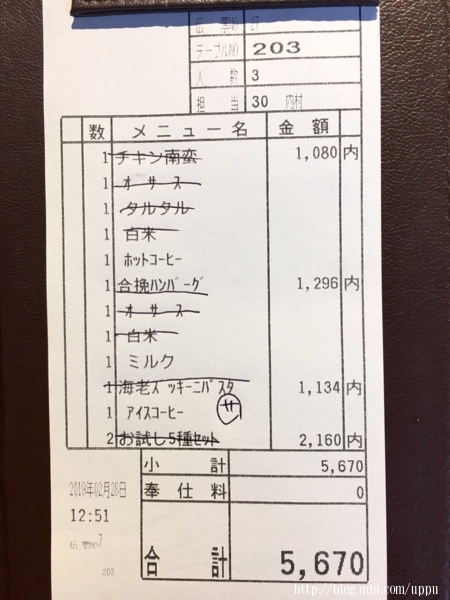 伝票NO 27
テーブルNO 203
人数 3
担当 30 内村
数 メニュー名 金額
1 チキン南蛮 1,080 内
1 オ サ ス
1 タルタル
1 白米
1 ホットコーヒー
1 合挽ハンバーグ 1,296 内
1 オ サ ス
1 白米
1 ミルク
1 海老ズッキーニパスタ 1,134 内
1 アイスコーヒー サ
2 お試し5種セット 2,160 内
小計 5,670
奉仕料 0
2019年02月28日
12:51
伝票NO 7
203
合計 5,670
http://blog.udn.com/uppu